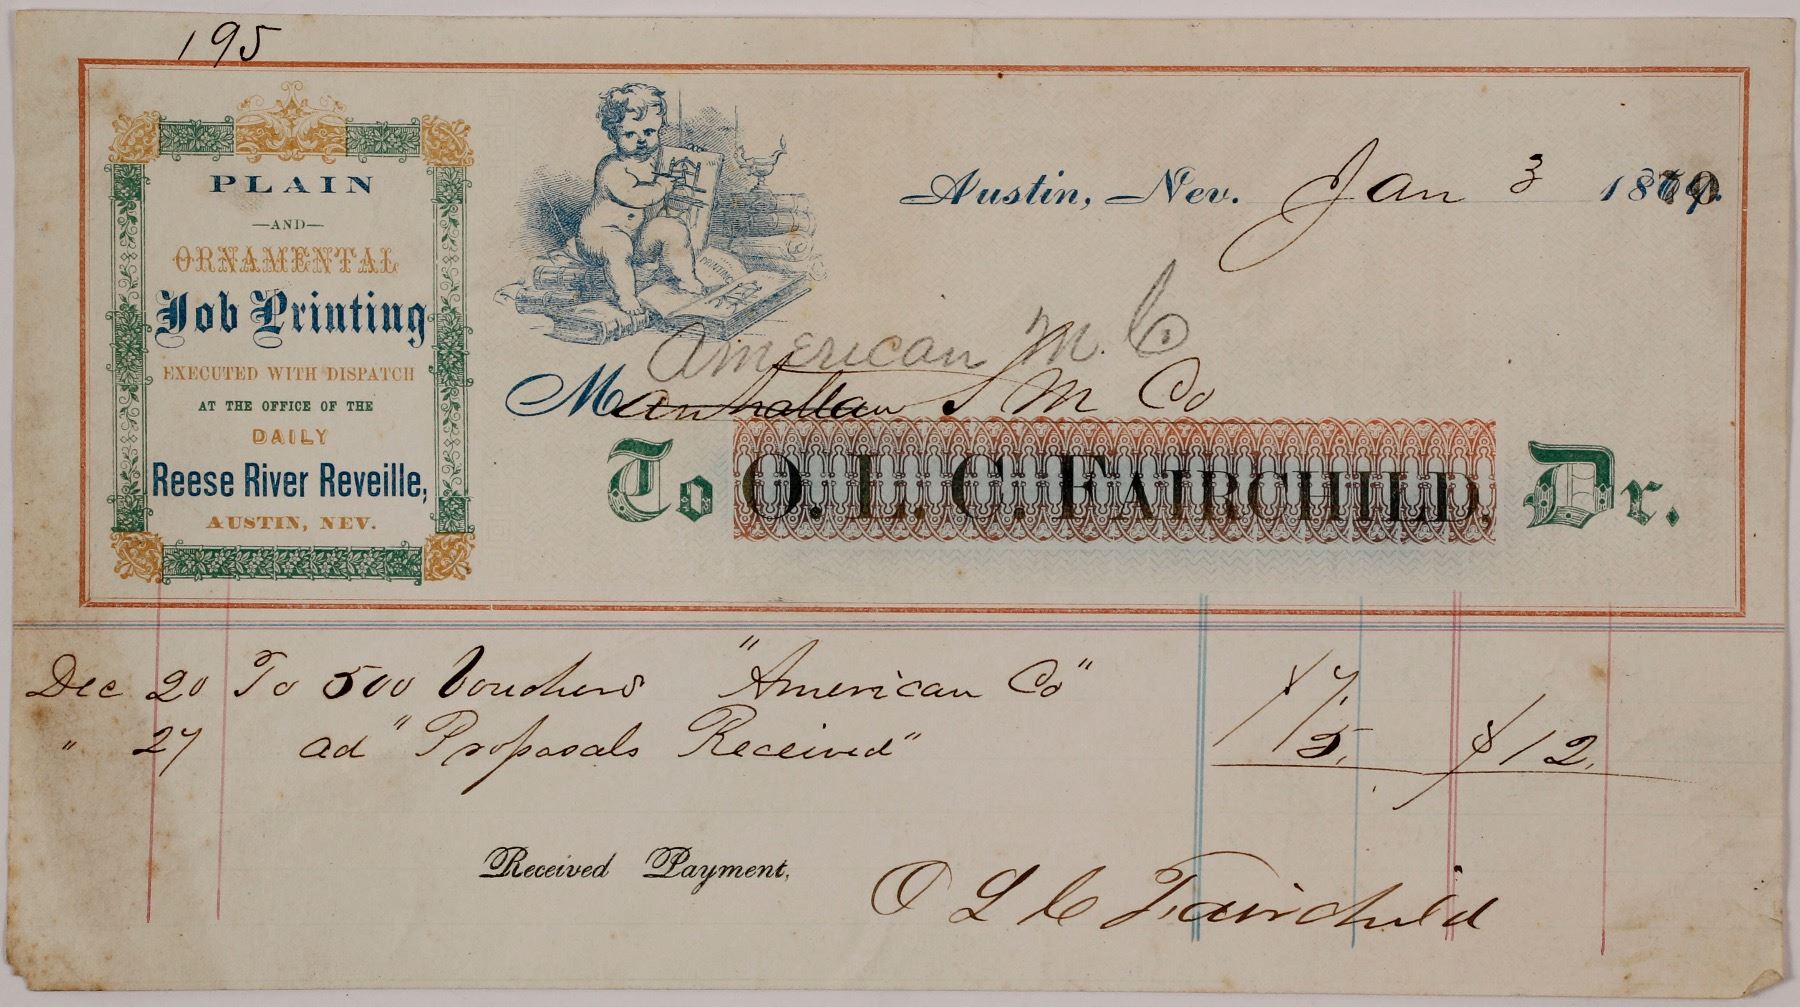 195
PLAIN
—AND—
ORNAMENTAL
Job Printing
EXECUTED WITH DISPATCH
AT THE OFFICE OF THE
DAILY
Reese River Reveille,
AUSTIN, NEV.
PRINTING
Austin, Nev. Jan 3 1870.
American M. Co
Manhattan S M Co
To O. L. C. FAIRCHILD, Dr.
Dec 20 To 500 Vouchers "American Co" $7.
" 27 ad "Proposals Received" 5. $12.
Received Payment,
O L C Fairchild